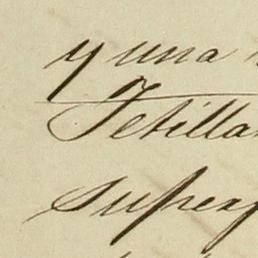 y una
Tetilla
super